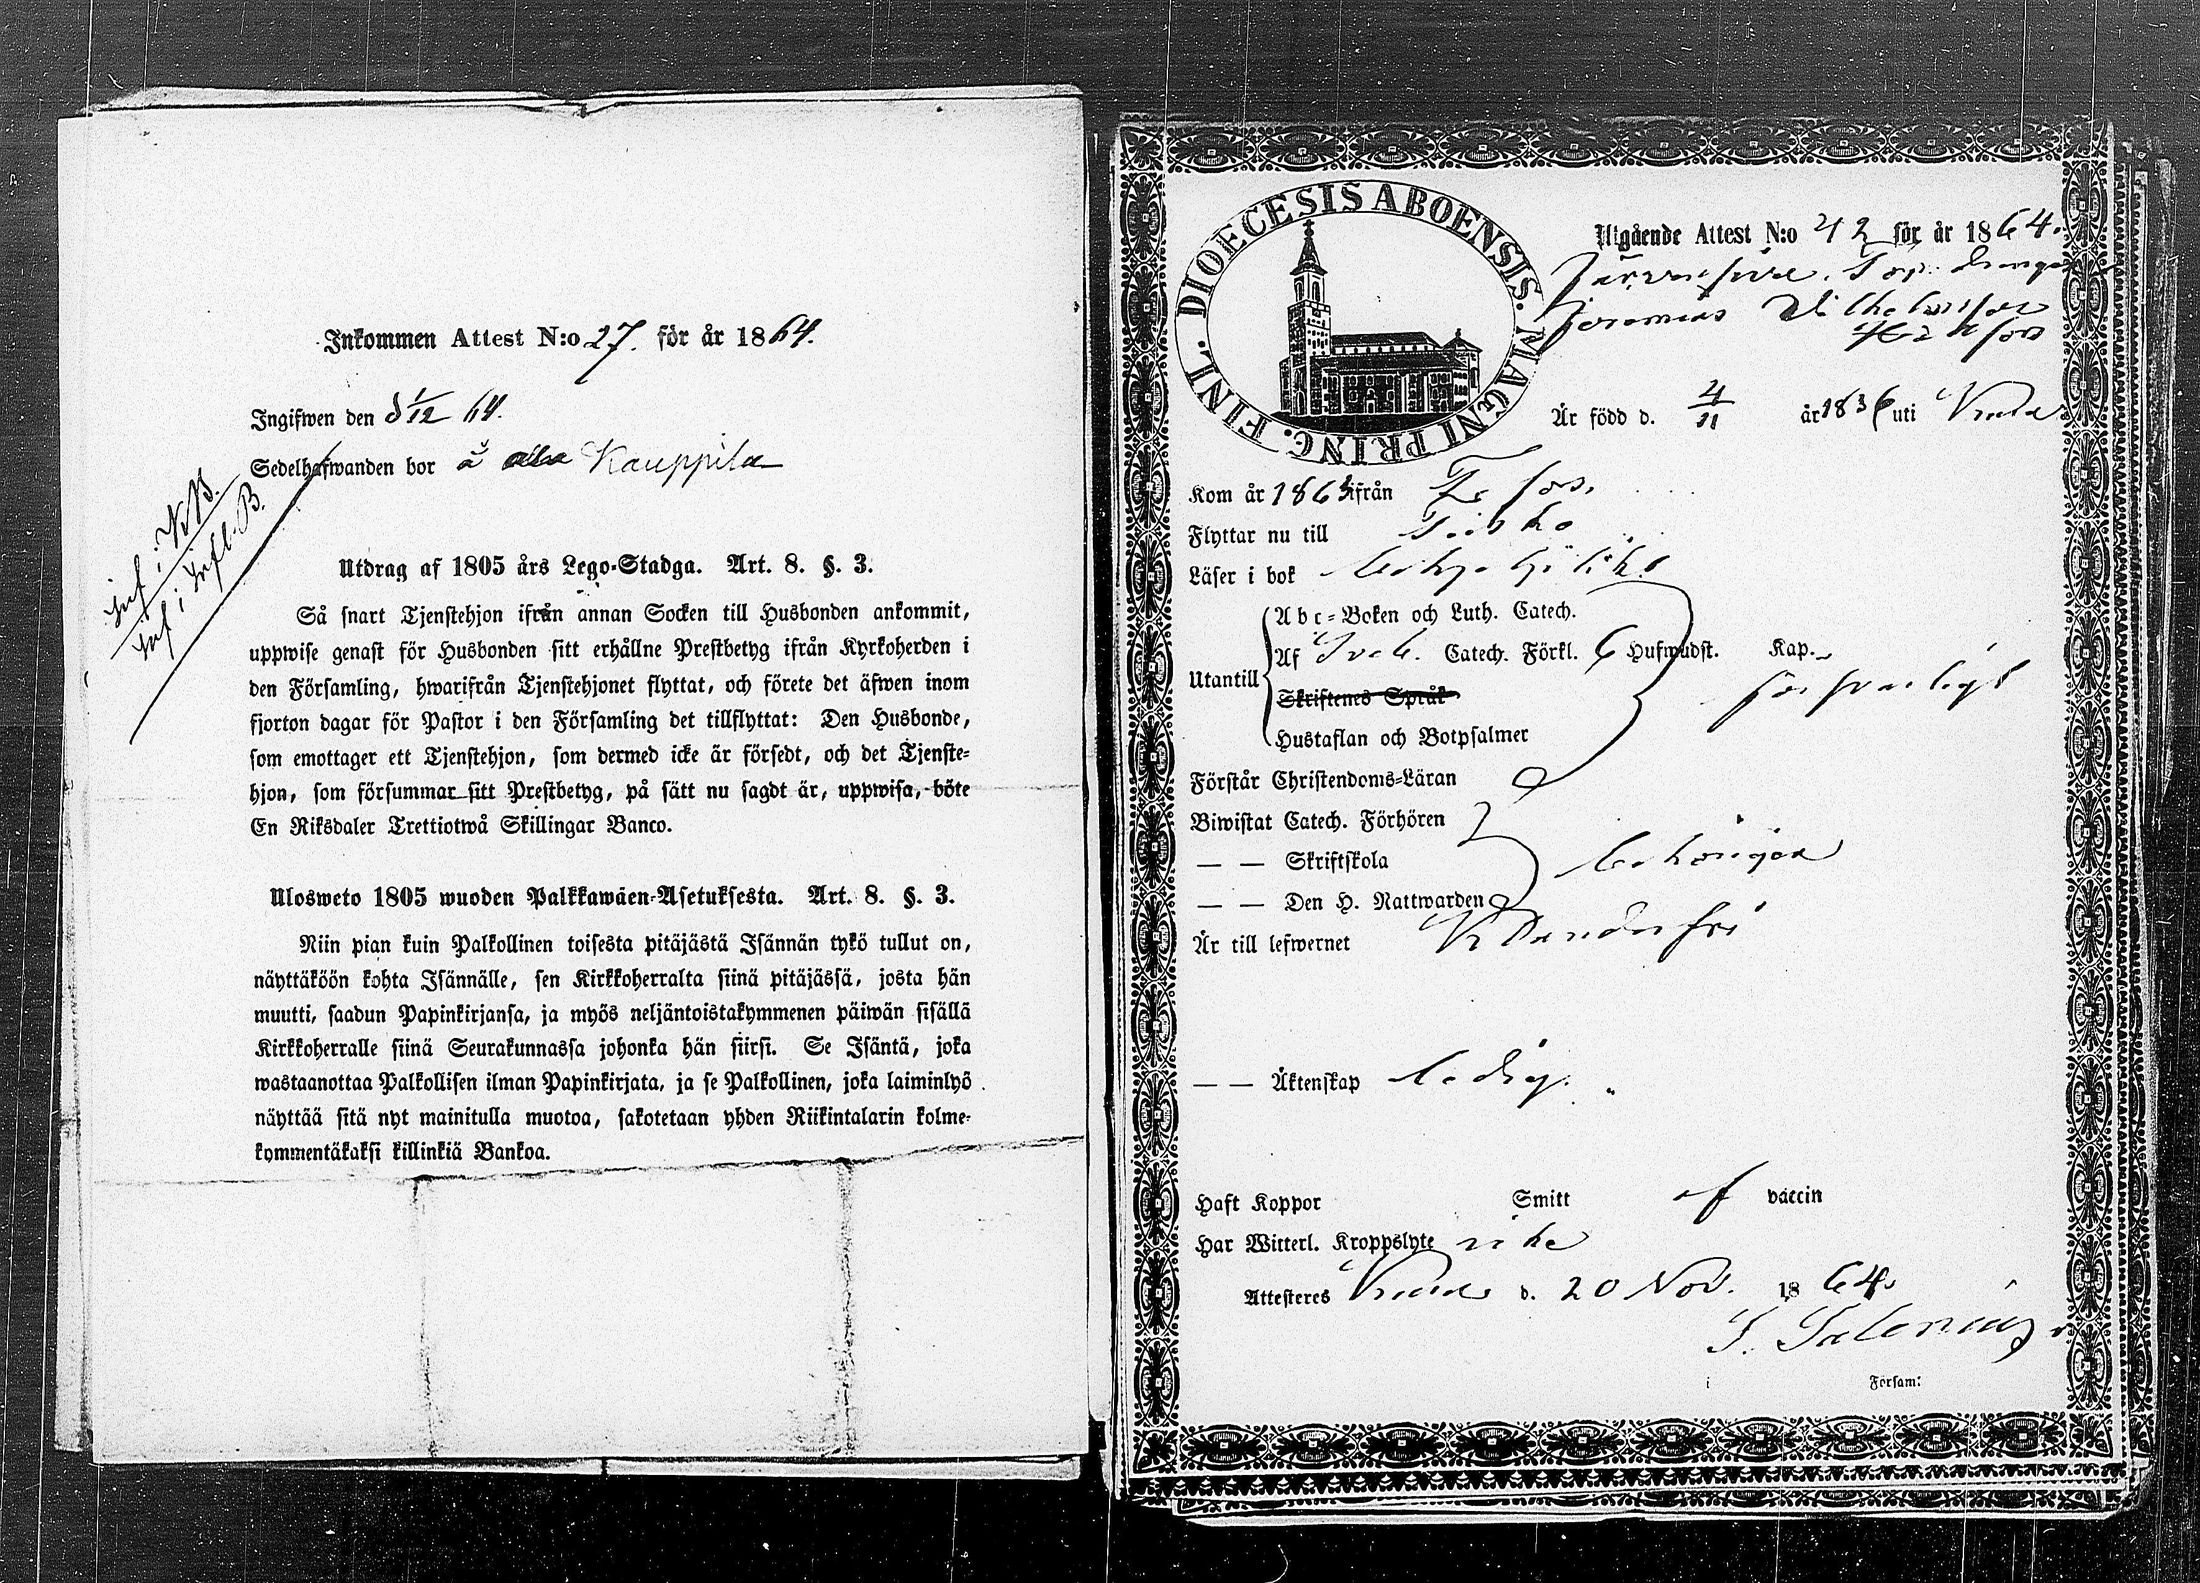 Inkommen Attest N:o 27. för år 1864.
Ingifwen den d 1/12 64.
Sedelhafwanden bor å Kauppila
Inf. i KB.
Inf. i Infl. B.
Utdrag af 1805 års Lego-Stadga. Art. 8. §. 3.
Så snart Tjenstehjon ifrån annan Socken till Husbonden ankommit,
uppwise genast för Husbonden sitt erhållne Prestbetyg ifrån Kyrkoherden i
den Församling, hwarifrån Tjenstehjonet flyttat, och förete det äfwen inom
fjorton dagar för Pastor i den Församling det tillflyttat: Den Husbonde,
som emottager ett Tjenstehjon, som dermed icke är försedt, och det Tjenste-
hjon, som försummar sitt Prestbetyg, på sätt nu sagdt är, uppwisa, böte
En Riksdaler Trettiotwå Skillingar Banco.
Ulosweto 1805 wuoden Palkkawäen-Asetuksesta. Art. 8. §. 3.
Niin pian kuin Palkollinen toisesta pitäjästä Isännän tykö tullut on,
näyttäköön kohta Isännälle, sen Kirkkoherralta siinä pitäjässä, josta hän
muutti, saadun Papinkirjansa, ja myös neljäntoistakymmenen päiwän sisällä
Kirkkoherralle siinä Seurakunnassa johonka hän siirsi. Se Isäntä, joka
wastaanottaa Palkollisen ilman Papinkirjata, ja se Palkollinen, joka laiminlyö
näyttää sitä nyt mainitulla muotoa, sakotetaan yhden Riikintalarin kolme-
kymmentäkaksi killinkiä Bankoa.
DIOECESIS ABOENSIS. MAGNI PRINC. FINL.
Utgående Attest N:o 42 för år 1864.
Jeremias Wilhelmsson
Är född d. 4/11 år 1836 uti
Kom år 1863 ifrån
Flyttar nu till Teisko
Läser i bok behjelpligt
Abc-Boken och Luth. Catech.
Utantill Af Sveb. Catech. Förkl. 6 Hufwudst. Kap. försvarligt
Skriftenes Språk
Hustaflan och Botpsalmer
Förstår Christendoms-Läran
Biwistat Catech. Förhören
— — Skriftskola behörigen
— — Den H. Nattwarden
Är till lefwernet Klanderfri
— — Äktenskap ledig.
Haft Koppor Smitt af vaccin
Har Witterl. Kroppslyte icke
Attesteres d. 20 Nov. 1864.
Salenius
i Församl: